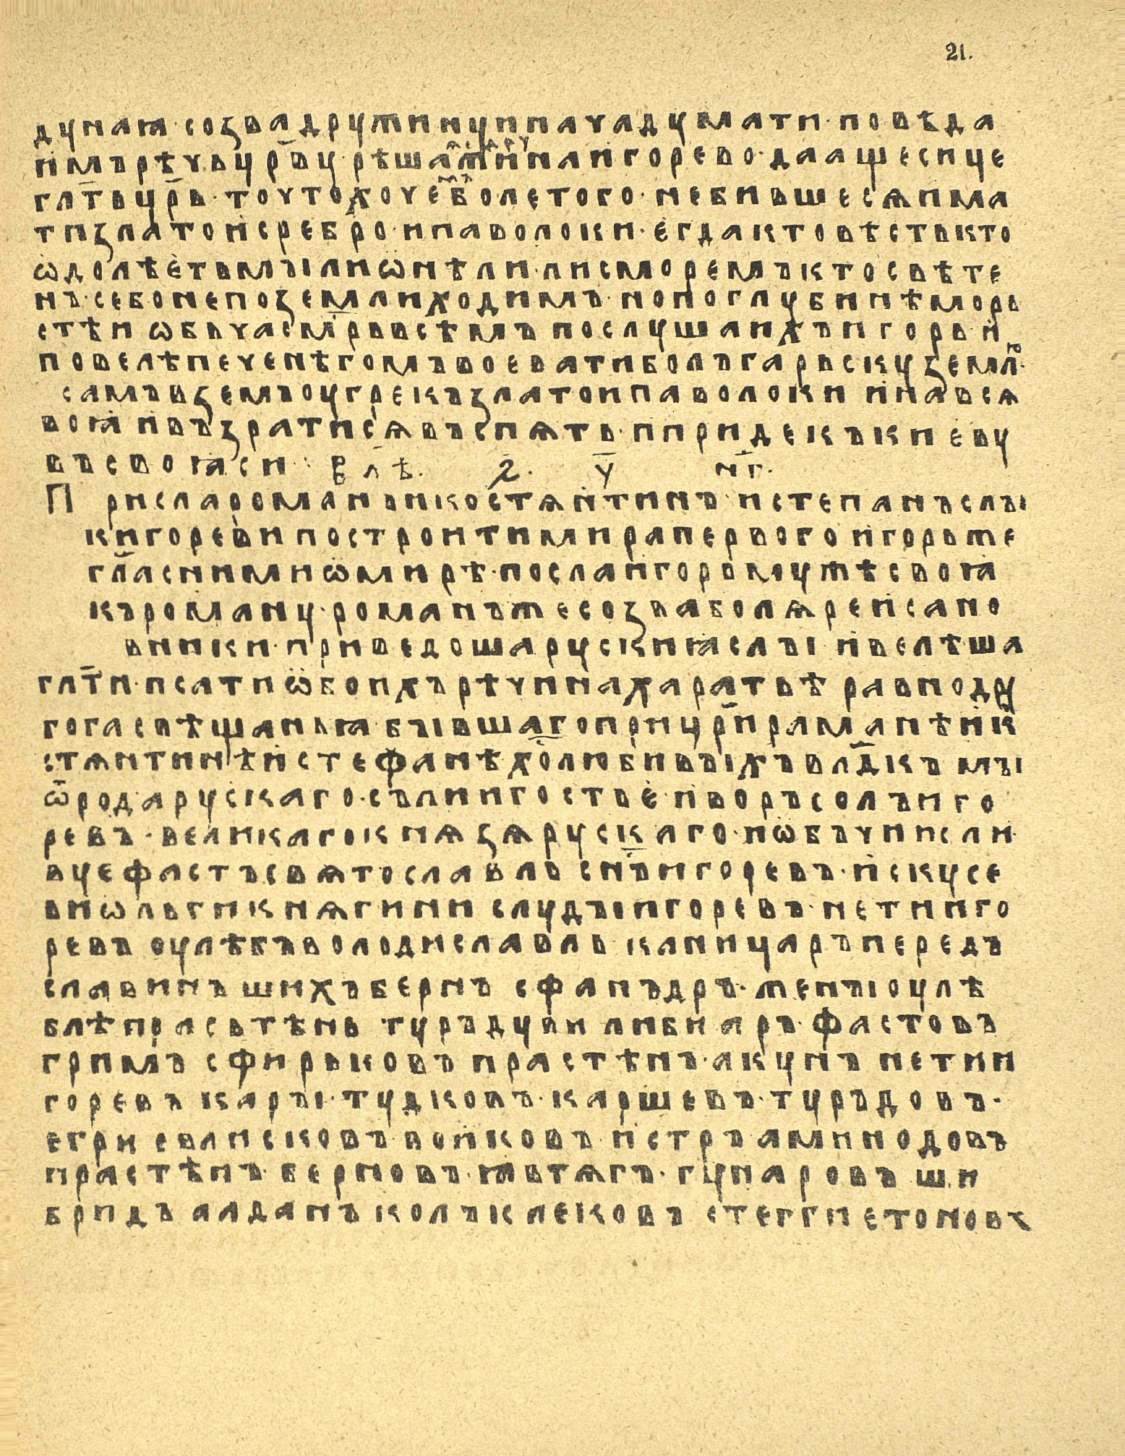 21.
дꙋнаꙗ·соꙁвадрꙋжинꙋиначадꙋмати·повѣда
имърѣчьцр҃вꙋ·рѣшаж҃инаигорево·даащесице
гл҃тьцр҃ь·точтохоче҃болетого·небившесѧима
тиꙁлатоисребро·ипаволоки·егдактовѣстькто
ѡдолѣетьмꙑлиѡнѣли·лисморемъктосвѣте
нъ·себонепоꙁемлиходимъ·нопоглꙋбинѣморь
стѣиѡбьчасм҃рьвсѣмъпослꙋшаихъигорьи
повелѣпеченѣгомъвоеватиболъгарьскꙋꙁемлю·
самъвꙁемъоугрекъꙁлатоипаволокиинавсѧ
воꙗивъꙁратисѧвъспѧть·ипридекъкиевꙋ
въсвоꙗси : В лѣ҃. ҂ꙅ. у҃ н҃г.
Прислароманъикостѧнтинъистепанъслꙑ
кигоревипостроитимирапервогоигорьже
гл҃аснимиѡмирѣ·послаигоромꙋжѣсвоꙗ
къроманꙋ·романъжесоꙁваболѧреисано
вники·приведошарꙋскиꙗслꙑивелѣша
гл҃типисатиѡбоихърѣчинахаратьѣравнодрꙋ
гогасвѣщаньꙗбꙑвшагоприцр҃ираманѣик
стѧнтинѣистефанѣхо҃любивꙑхъвлд҃къмꙑ
ѿродарꙋскаго·съли игостьеиворъсолъиго
ревъ·великагокнѧꙁѧрꙋскаго·иѡбъчиисли·
вꙋефастъсвѧтославльсн҃ъигоревъ·искꙋсе
виѡльгикнѧгинислꙋдꙑигоревъ·нетииго
ревъоулѣбъволодиславльканицаръпередъ
славинъшихъбернъсфанъдръ·женꙑоулѣ
блѣпрасьтѣньтꙋръдꙋвилибиаръфастовъ
гримъсфирьковъпрастѣнъ·акꙋнънетии
горевъкарꙑ·тꙋдковъ·каршевъ·тꙋръдовъ·
егриевлисковъвоиковъистръаминодовъ
прастѣнъберновъꙗвтѧгъ·гꙋнаровъши
бридъалданъколъклековъстеггиетоновъ